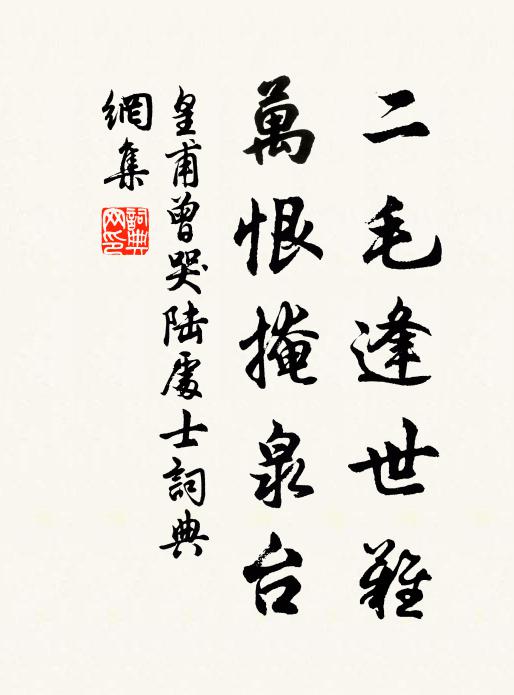 二毛逢世難
萬恨掩泉台
皇甫曾哭陸處士詞典
網集
詞典
网印